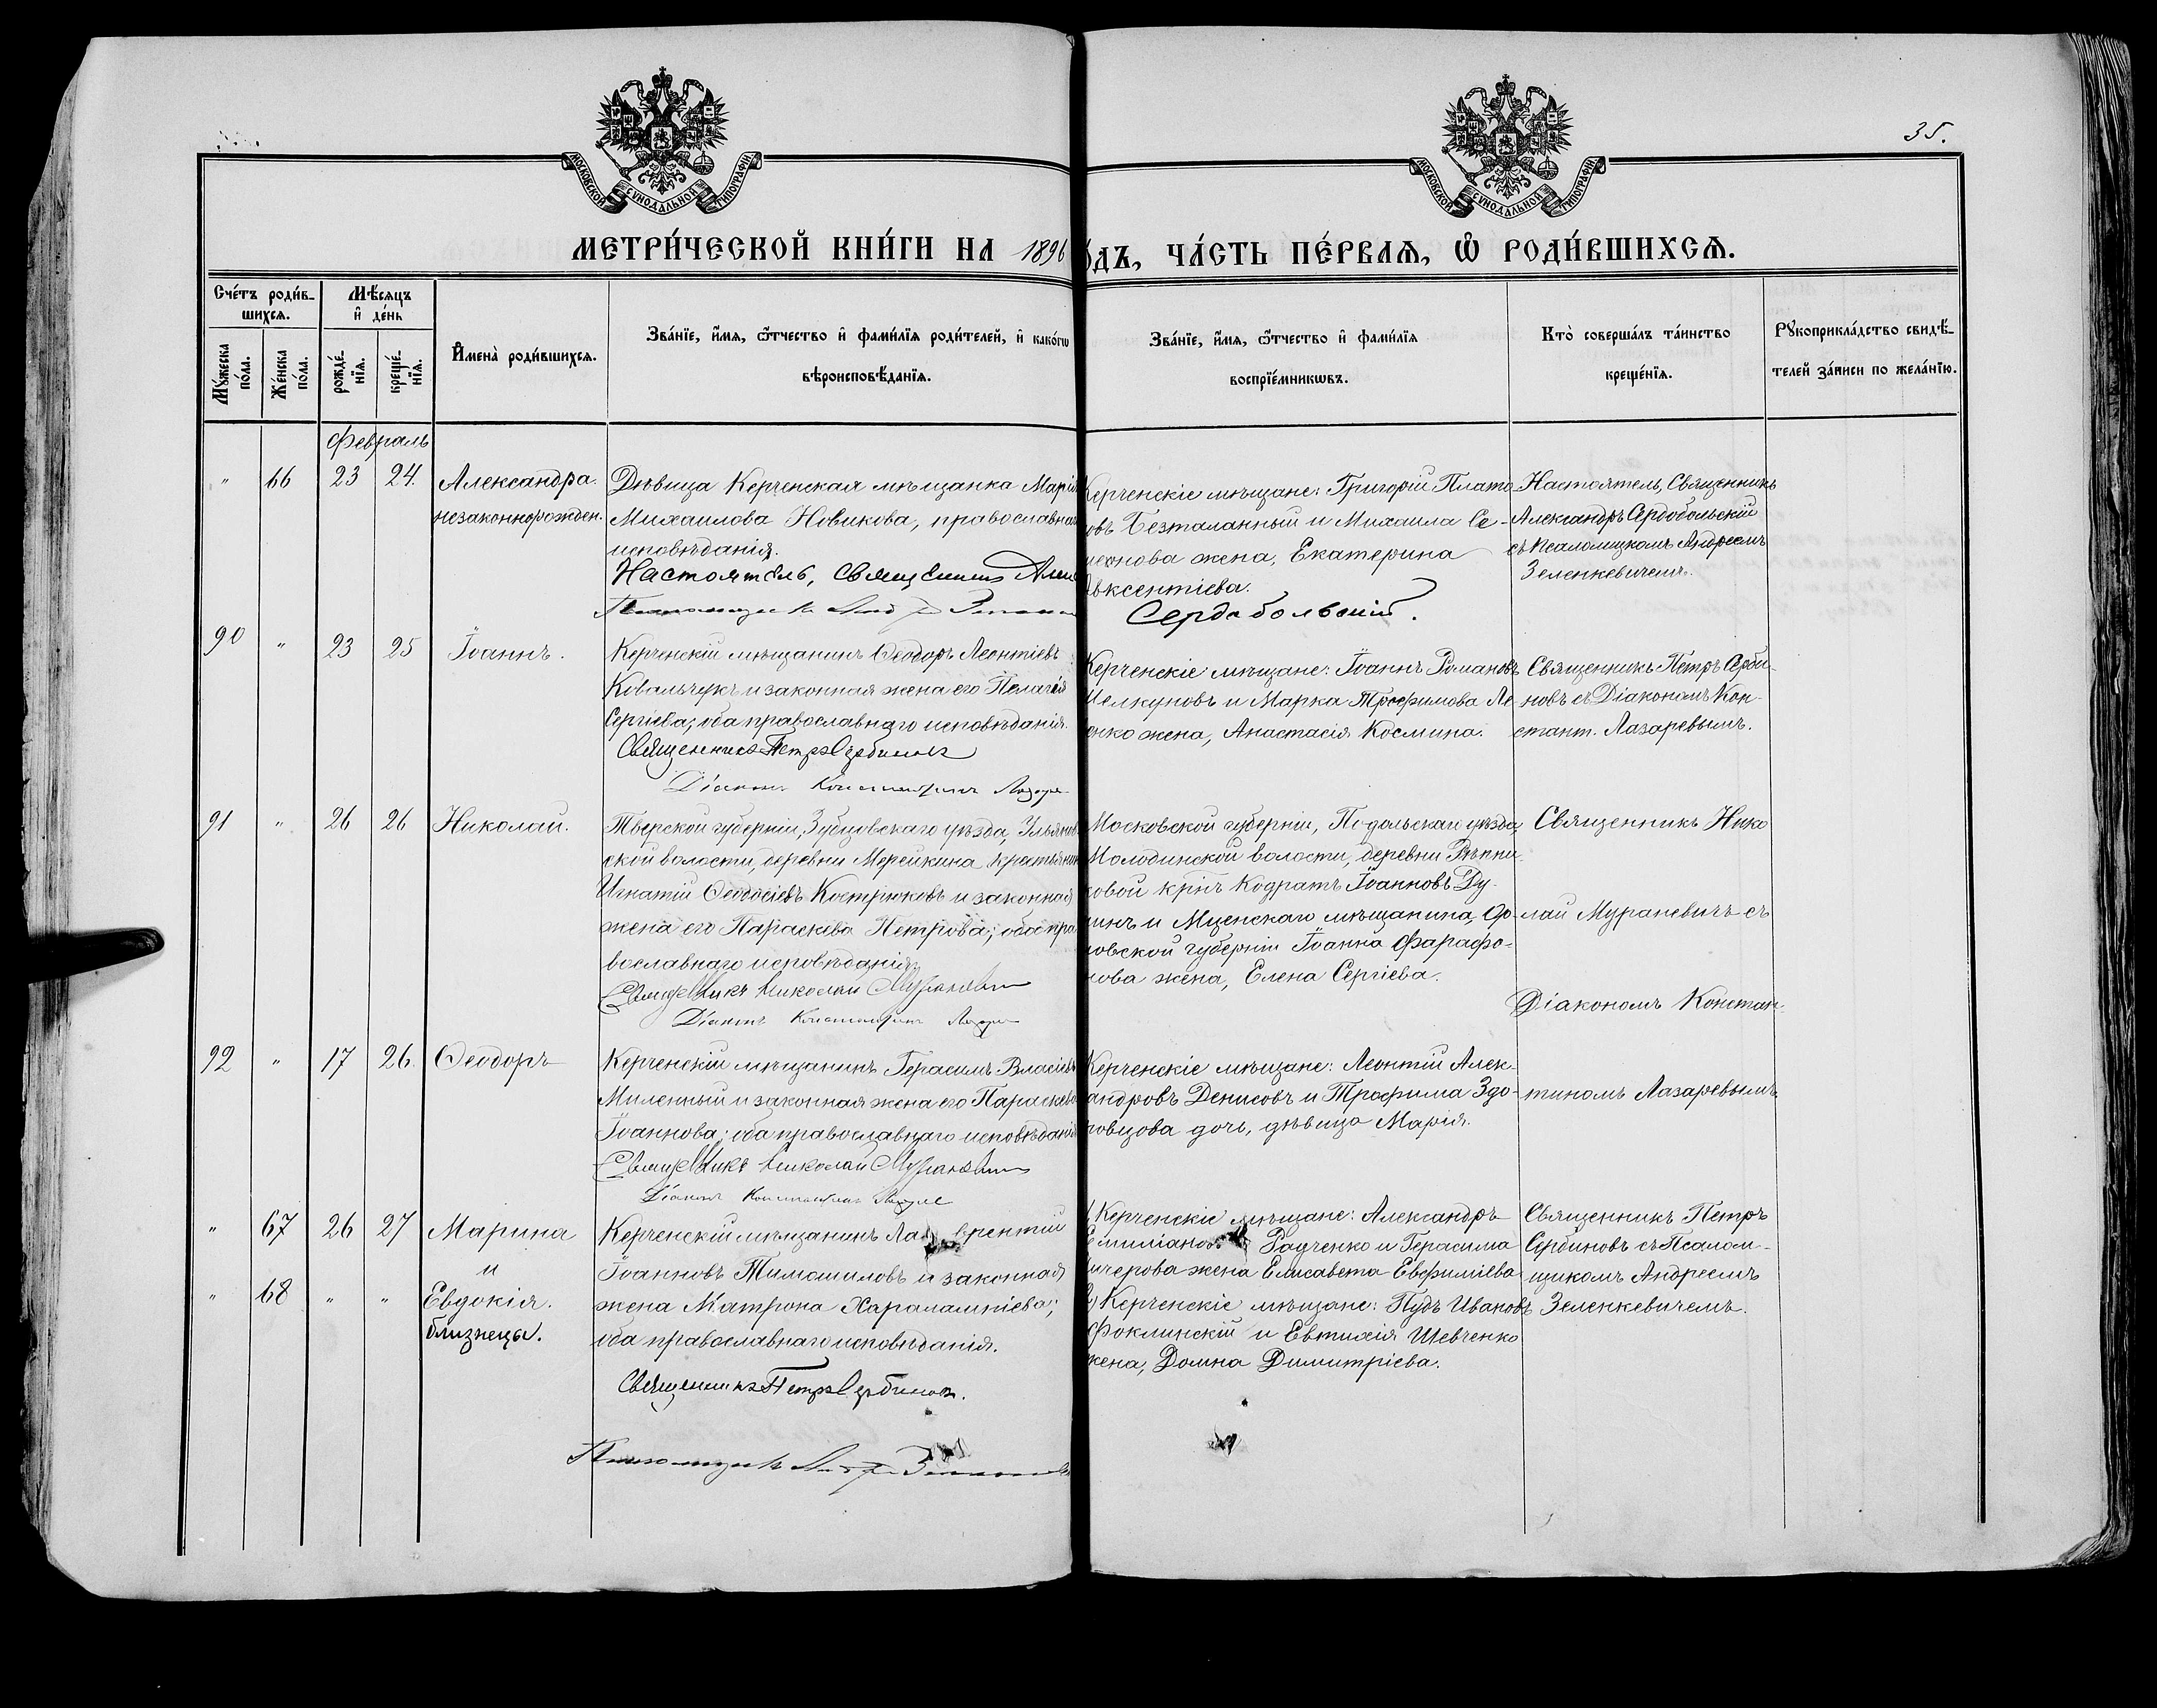 МОСКОВСКОЙ СУНОДАЛЬНОЙ ТИПОГРАФІИ
МОСКОВСКОЙ СУНОДАЛЬНОЙ ТИПОГРАФІИ
35.
МЕТРИ́ЧЕСКОЙ КНИ́ГИ НА 1896
О́ДЪ, ЧА́СТЬ ПЕ́РВАѦ, Ѿ РОДИ́ВШИХСѦ.
Сче́тъ роди́в-
шихсѧ.
Мѣ́сѧцъ
и҆ де́нь
Мꙋ́жеска
по́ла.
Же́нска
по́ла.
рожде́-
нїѧ.
креще́-
нїѧ.
И҆мена̀ роди́вшихсѧ.
Зва́нїе, и҆́мѧ, ѻ҆́тчество и҆ фами́лїѧ роди́телей, и҆ како́гѡ
вѣроисповѣ́данїѧ.
Зва́нїе, и҆́мѧ, ѻ҆́тчество и҆ фами́лїѧ
воспрїе́мникѡвъ.
Кто̀ соверша́лъ та́инство
креще́нїѧ.
Рꙋкоприкла́дство свидѣ́-
телей за́писи по жела́нїю.
Февраль
" 66 23 24. Александра.
незаконнорожден.
Дѣвица Керченская мѣщанка Марія
Михаилова Новикова, православна
исповѣданія.
Настоятель, Священникъ Алек
Керченскіе мѣщане: Григорій Плато-
овъ Безталанный и Михаила Се-
меонова жена, Екатерина
Авксентіева.
Сердобольскій.
Настоятель, Священникъ
Александръ Сердобольскій
съ Псаломщикомъ Андреемъ
Зеленкевичемъ.
90 " 23 25 Іоаннъ.
Керченскій мѣщанинъ Ѳеодоръ Леонтіевъ
Ковальчукъ и законная жена его Пелагія
Сергіева; оба православнаго исповѣданія.
Священникъ Петръ Сербиновъ
Діаконъ Константинъ Лазаре
Керченскіе мѣщане: Іоаннъ Романовъ
Шелкуновъ и Марка Трофимова Ле-
онко жена, Анастасія Космина.
Священникъ Петръ Серби-
новъ съ Діакономъ Кон-
стант. Лазаревымъ.
91 " 26 26 Николай.
Тверской губерніи, Зубцовскаго уѣзда, Ульянов
ской волости, деревни Мерейкина крестьянин
Игнатій Ѳеодосіевъ Кострюковъ и законная
жена его Параскева Петрова; оба пра
вославнаго исповѣданія.
Священникъ Николай Мураневичъ
Діаконъ Константинъ Лазаре
Московской губерніи, Подольскаго уѣзда,
Молодинской волости, деревни Рѣпни-
ковой кр҃нъ Кодратъ Іоанновъ Ду-
инъ и Мценскаго мѣщанина, Ор-
ловской губерніи Іоанна Фарафо-
нова жена, Елена Сергіева.
Священникъ Нико
лай Мураневичъ съ
Діакономъ Констан-
тиномъ Лазаревымъ
92 " 17 26. Ѳеодоръ
Керченскій мѣщанинъ Герасимъ Власіевъ
Миленный и законная жена его Параскева
Іоаннова; оба православнаго исповѣданія
Священникъ Николай Мураневичъ
Діаконъ Константинъ Лазаре
Керченскіе мѣщане: Леонтій Алек-
андровъ Денисовъ и Трофима Здо-
ровцова дочь, дѣвица Марія.
" 67 26 27 Марина
и
" 68 " " Евдокія.
близнецы.
Керченскій мѣщанинъ Лаврентій
Іоанновъ Тимошиловъ и законная
жена Матрона Харалампіева;
оба православнаго исповѣданія.
Священникъ Петръ Сербиновъ.
Керченскіе мѣщане: Александръ
Емиліановъ Радченко и Герасима
учерова жена Елисавета Евфиміева
Керченскіе мѣщане: Пудъ Ивановъ
Фоклинскій и Евтихія Шевченко
жена, Домна Димитріева.
Священникъ Петръ
Сербиновъ съ Псалом-
щикомъ Андреемъ
Зеленкевичемъ.